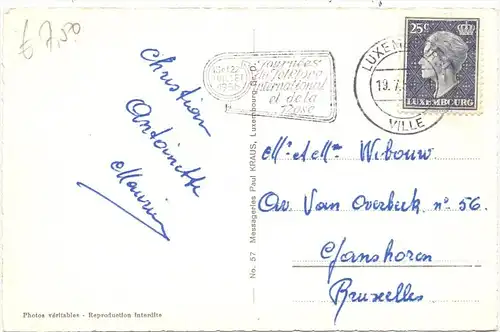 £ 7,50
Christian
Antoinette
Photos véritables - Reproduction interdite
No. 57 Messageries Paul KRAUS, Luxembourg-Gr. D.
Journées
du Folklore
international
et de la
Rose
LUXEM
19.7.
VILLE
25c
LUXEMBOURG
Mr et Mme Wibouw.
Av. Van Overbeek no 56.
Ganshoren
Bruxelles